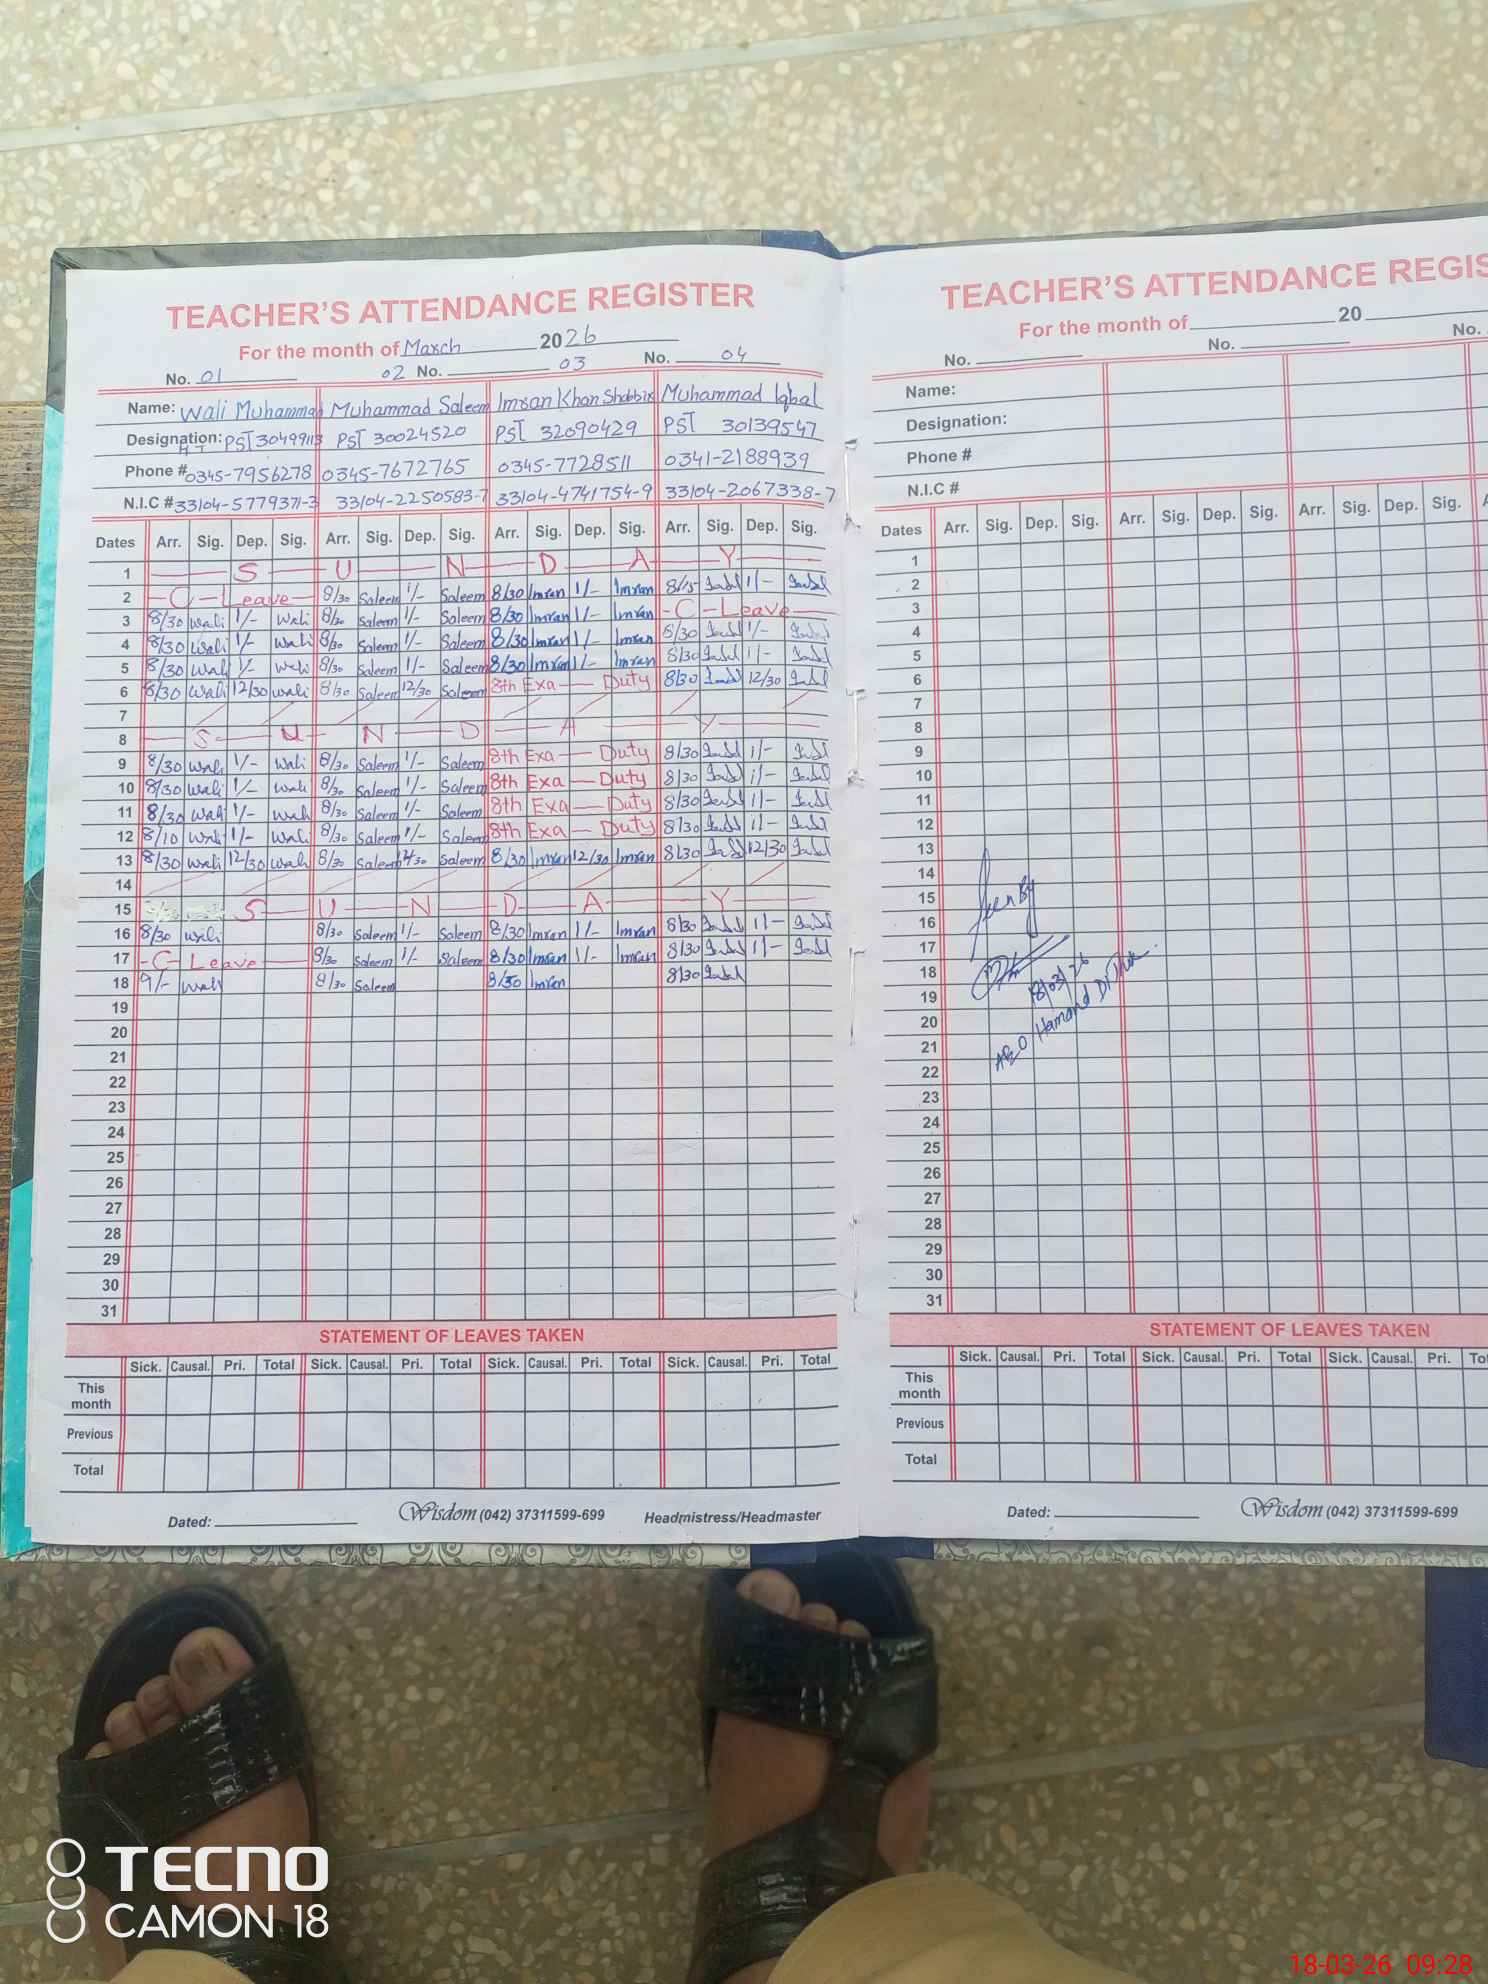 TEACHER'S ATTENDANCE REGISTER
For the month of March 2026
No. 01 02 No. 03 No. 04
Name: Wali Muhammad Muhammad Saleem Imran Khan Shabbir Muhammad Iqbal
Designation: PST 30499113 PST 30024520 PST 32090429 PST 30139547
Phone # 0345-7956278 0345-7672765 0345-7728511 0341-2188939
N.I.C # 33104-5779371-3 33104-2250583-7 33104-4741754-9 33104-2067338-7
Dates Arr. Sig. Dep. Sig. Arr. Sig. Dep. Sig. Arr. Sig. Dep. Sig. Arr. Sig. Dep. Sig.
1 S U N D A Y
2 - C - Leave - 8/30 Saleem 1/- Saleem 8/30 Imran 1/- Imran 8/15 Iqbal 1/- Iqbal
3 8/30 Wali 1/- Wali 8/30 Saleem 1/- Saleem 8/30 Imran 1/- Imran - C - Leave
4 8/30 Wali 1/- Wali 8/30 Saleem 1/- Saleem 8/30 Imran 1/- Imran 8/30 Iqbal 1/- Iqbal
5 8/30 Wali 1/- Wali 8/30 Saleem 1/- Saleem 8/30 Imran 1/- Imran 8/30 Iqbal 1/- Iqbal
6 8/30 Wali 12/30 Wali 8/30 Saleem 12/30 Saleem 8th Exa — Duty 8/30 Iqbal 12/30 Iqbal
7
8 S U N D A Y
9 8/30 Wali 1/- Wali 8/30 Saleem 1/- Saleem 8th Exa — Duty 8/30 Iqbal 1/- Iqbal
10 8/30 Wali 1/- Wali 8/30 Saleem 1/- Saleem 8th Exa — Duty 8/30 Iqbal 1/- Iqbal
11 8/30 Wali 1/- Wali 8/30 Saleem 1/- Saleem 8th Exa — Duty 8/30 Iqbal 1/- Iqbal
12 8/10 Wali 1/- Wali 8/30 Saleem 1/- Saleem 8th Exa — Duty 8/30 Iqbal 1/- Iqbal
13 8/30 Wali 12/30 Wali 8/30 Saleem 12/30 Saleem 8/30 Imran 12/30 Imran 8/30 Iqbal 12/30 Iqbal
14
15 S U N D A Y
16 8/30 Wali 8/30 Saleem 1/- Saleem 8/30 Imran 1/- Imran 8/30 Iqbal 1/- Iqbal
17 - C - Leave 8/30 Saleem 1/- Saleem 8/30 Imran 1/- Imran 8/30 Iqbal 1/- Iqbal
18 9/- Wali 8/30 Saleem 8/30 Imran 8/30 Iqbal
19
20
21
22
23
24
25
26
27
28
29
30
31
STATEMENT OF LEAVES TAKEN
Sick. Causal. Pri. Total Sick. Causal. Pri. Total Sick. Causal. Pri. Total Sick. Causal. Pri. Total
This month
Previous
Total
Dated: Wisdom (042) 37311599-699 Headmistress/Headmaster
TEACHER'S ATTENDANCE REGIS
For the month of 20
No. No. No.
Name:
Designation:
Phone #
N.I.C #
Dates Arr. Sig. Dep. Sig. Arr. Sig. Dep. Sig. Arr. Sig. Dep. Sig.
1
2
3
4
5
6
7
8
9
10
11
12
13
14
15
16
17
18
19
20
21
22
23
24
25
26
27
28
29
30
31
Seen By
18/03/26
AEO Hamand
STATEMENT OF LEAVES TAKEN
Sick. Causal. Pri. Total Sick. Causal. Pri. Total Sick. Causal. Pri. To
This month
Previous
Total
Dated: Wisdom (042) 37311599-699
TECNO
CAMON 18
18-03-26 09:28